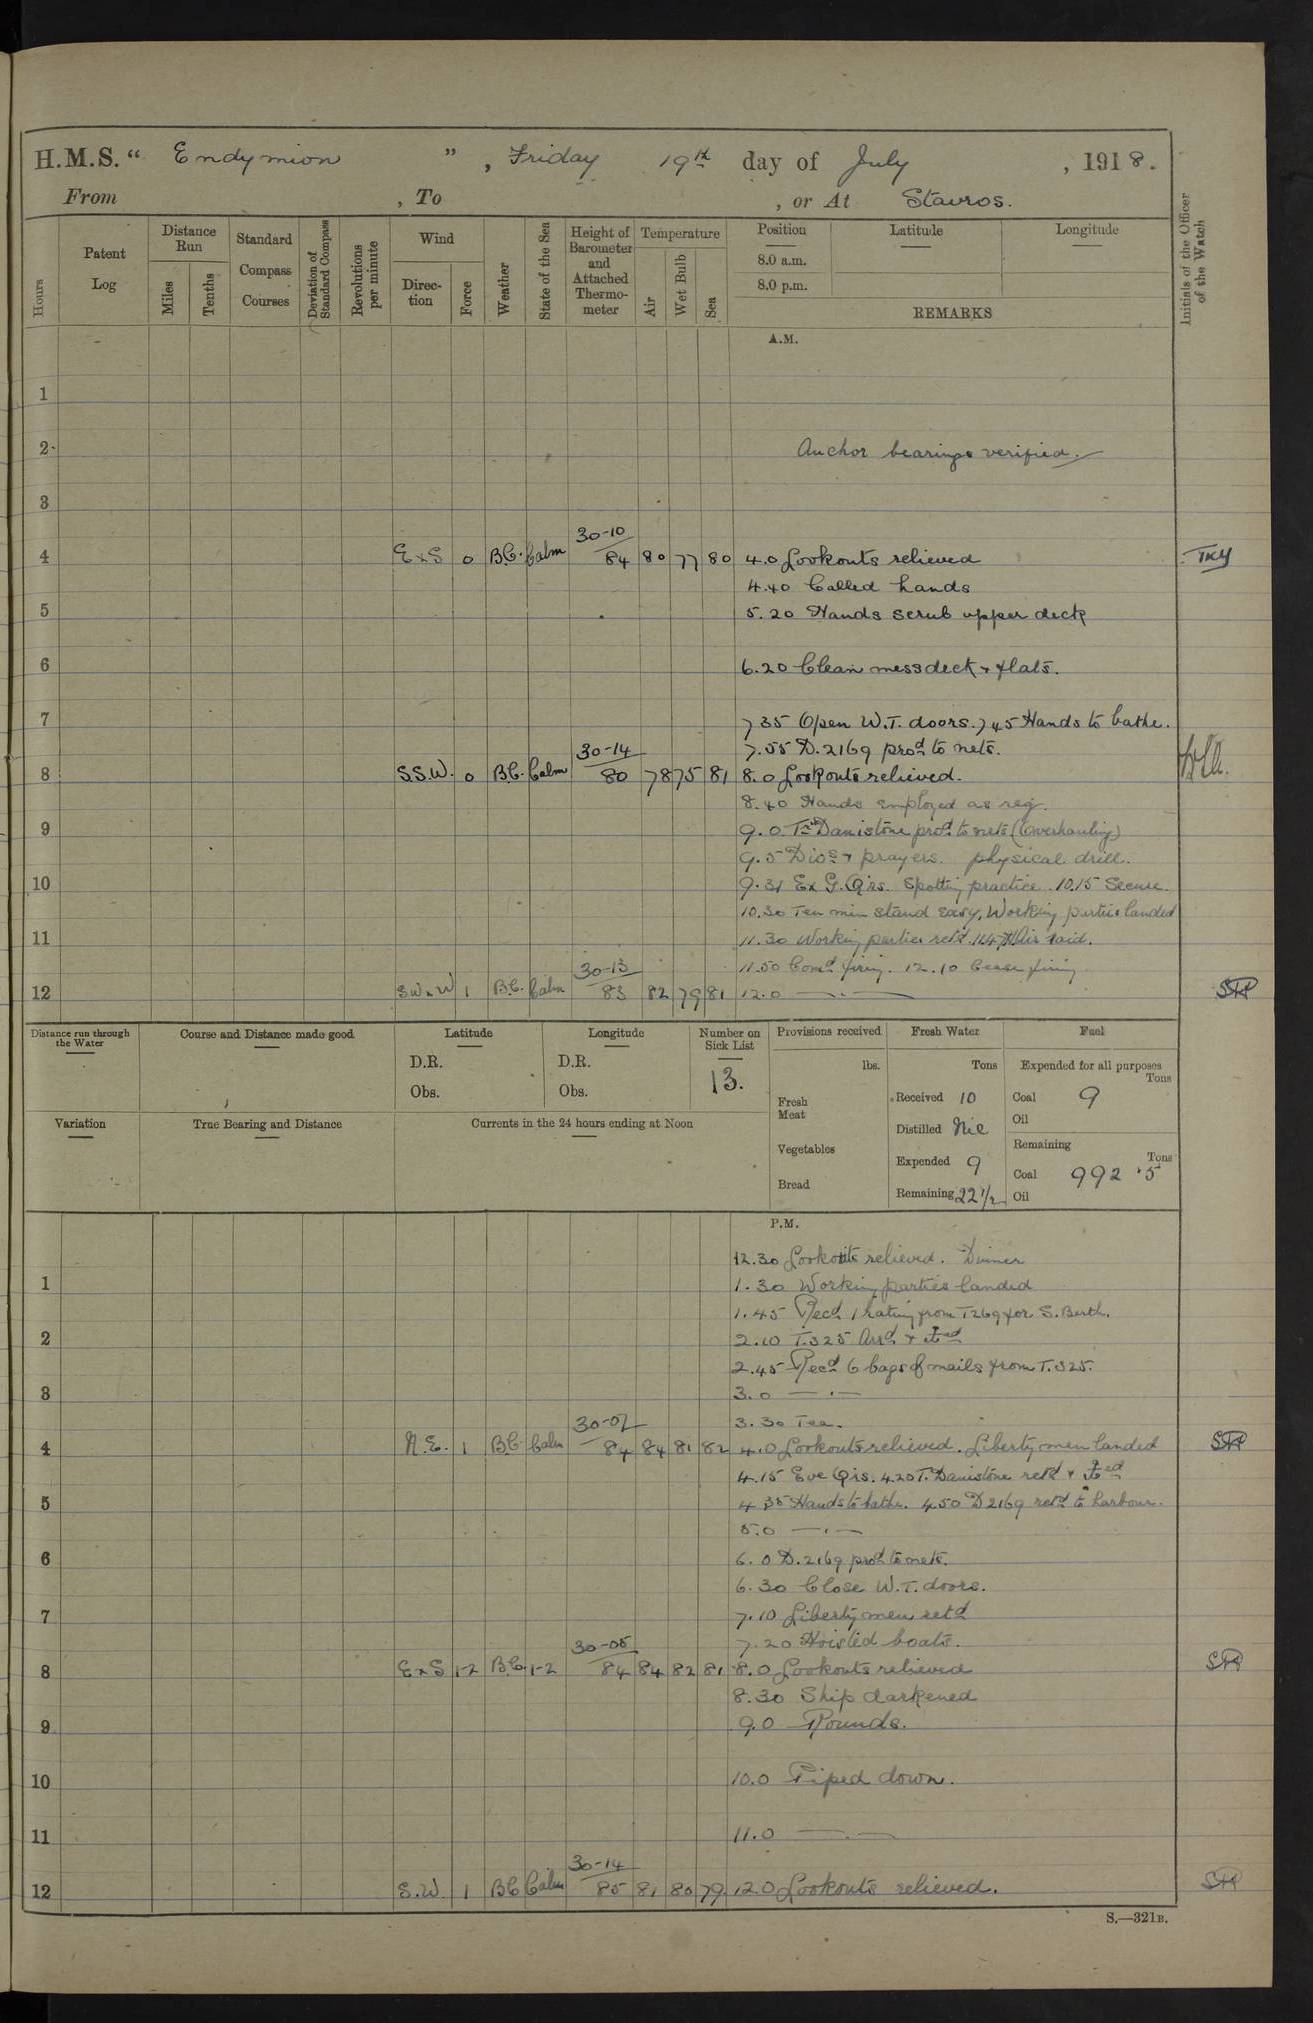 H.M.S. “ Endymion ” , Friday 19th day of July , 1918.
From , To , or At Stavros.
Hours
Patent Log
Distance Run
Miles
Tenths
Standard Compass Courses
Deviation of Standard Compass
Revolutions per minute
Wind
Direction
Force
Weather
State of the Sea
Height of Barometer and Attached Thermometer
Temperature
Air
Wet Bulb
Sea
Position Latitude Longitude
8.0 a.m.
8.0 p.m.
REMARKS
Initials of the Officer of the Watch
A.M.
1
2 Anchor bearings verified.
3
30-10
4 E x S 0 B.C. Calm 84 80 77 80 4.0 Lookouts relieved TKY
4.40 Called hands
5 5.20 Hands scrub upper deck
6 6.20 Clean messdeck + flats.
7 7 35 Open W.T. doors. 7 45 Hands to bathe.
30-14 7.55 D.2169 procd to nets.
8 S.S.W. 0 B.C. Calm 80 78 75 81 8.0 Lookouts relieved.
8.40 Hands employed as req.
9 9.0 Danistone procd to nets (Overhauling)
9.5 Divs + prayers. physical drill.
10 9.31 Ex G. Qrs. Spotting practice. 10.15 Secure.
10.30 Ten min stand easy, Working parties landed
11 11.30 Working parties retd. Air raid.
30-13 11.50 Comd firing. 12.10 Cease firing
12 SW x W 1 B.C. Calm 83 82 79 81 12.0 — . —
Distance run through the Water
Course and Distance made good
Latitude
D.R.
Obs.
Longitude
D.R.
Obs.
Number on Sick List
13.
Provisions received
lbs.
Fresh Meat
Vegetables
Bread
Fresh Water
Tons
Received 10
Distilled Nil
Expended 9
Remaining 22 1/2
Fuel
Expended for all purposes
Tons
Coal 9
Oil
Remaining
Tons
Coal 992 .5
Oil
Variation
True Bearing and Distance
Currents in the 24 hours ending at Noon
P.M.
12.30 Lookouts relieved. Dinner
1 1.30 Working parties landed
1.45 Recd 1 rating from T269 for S. Berth.
2 2.10 T.325 Arrd +
2.45 Recd 6 bags of mails from T.325.
3 3.0 — . —
30-07 3.30 Tea.
4 N.E. 1 B.C. Calm 84 84 81 82 4.0 Lookouts relieved. Liberty men landed
4.15 Eve Qrs. 4.20 T. Danistone retd +
5 4 35 Hands to bathe. 4.50 D2169 retd to harbour.
5.0 — . —
6 6.0 D.2169 procd to nets.
6.30 Close W.T. doors.
7 7.10 Liberty men retd
30-05 7.20 Hoisted boats.
8 E x S 1-2 B.C. 1-2 84 84 82 81 8.0 Lookouts relieved
8.30 Ship darkened
9 9.0 Rounds.
10 10.0 Piped down.
11 11.0 — . —
30-14
12 S.W. 1 B.C. Calm 85 81 80 79 12.0 Lookouts relieved.
S.—321B.